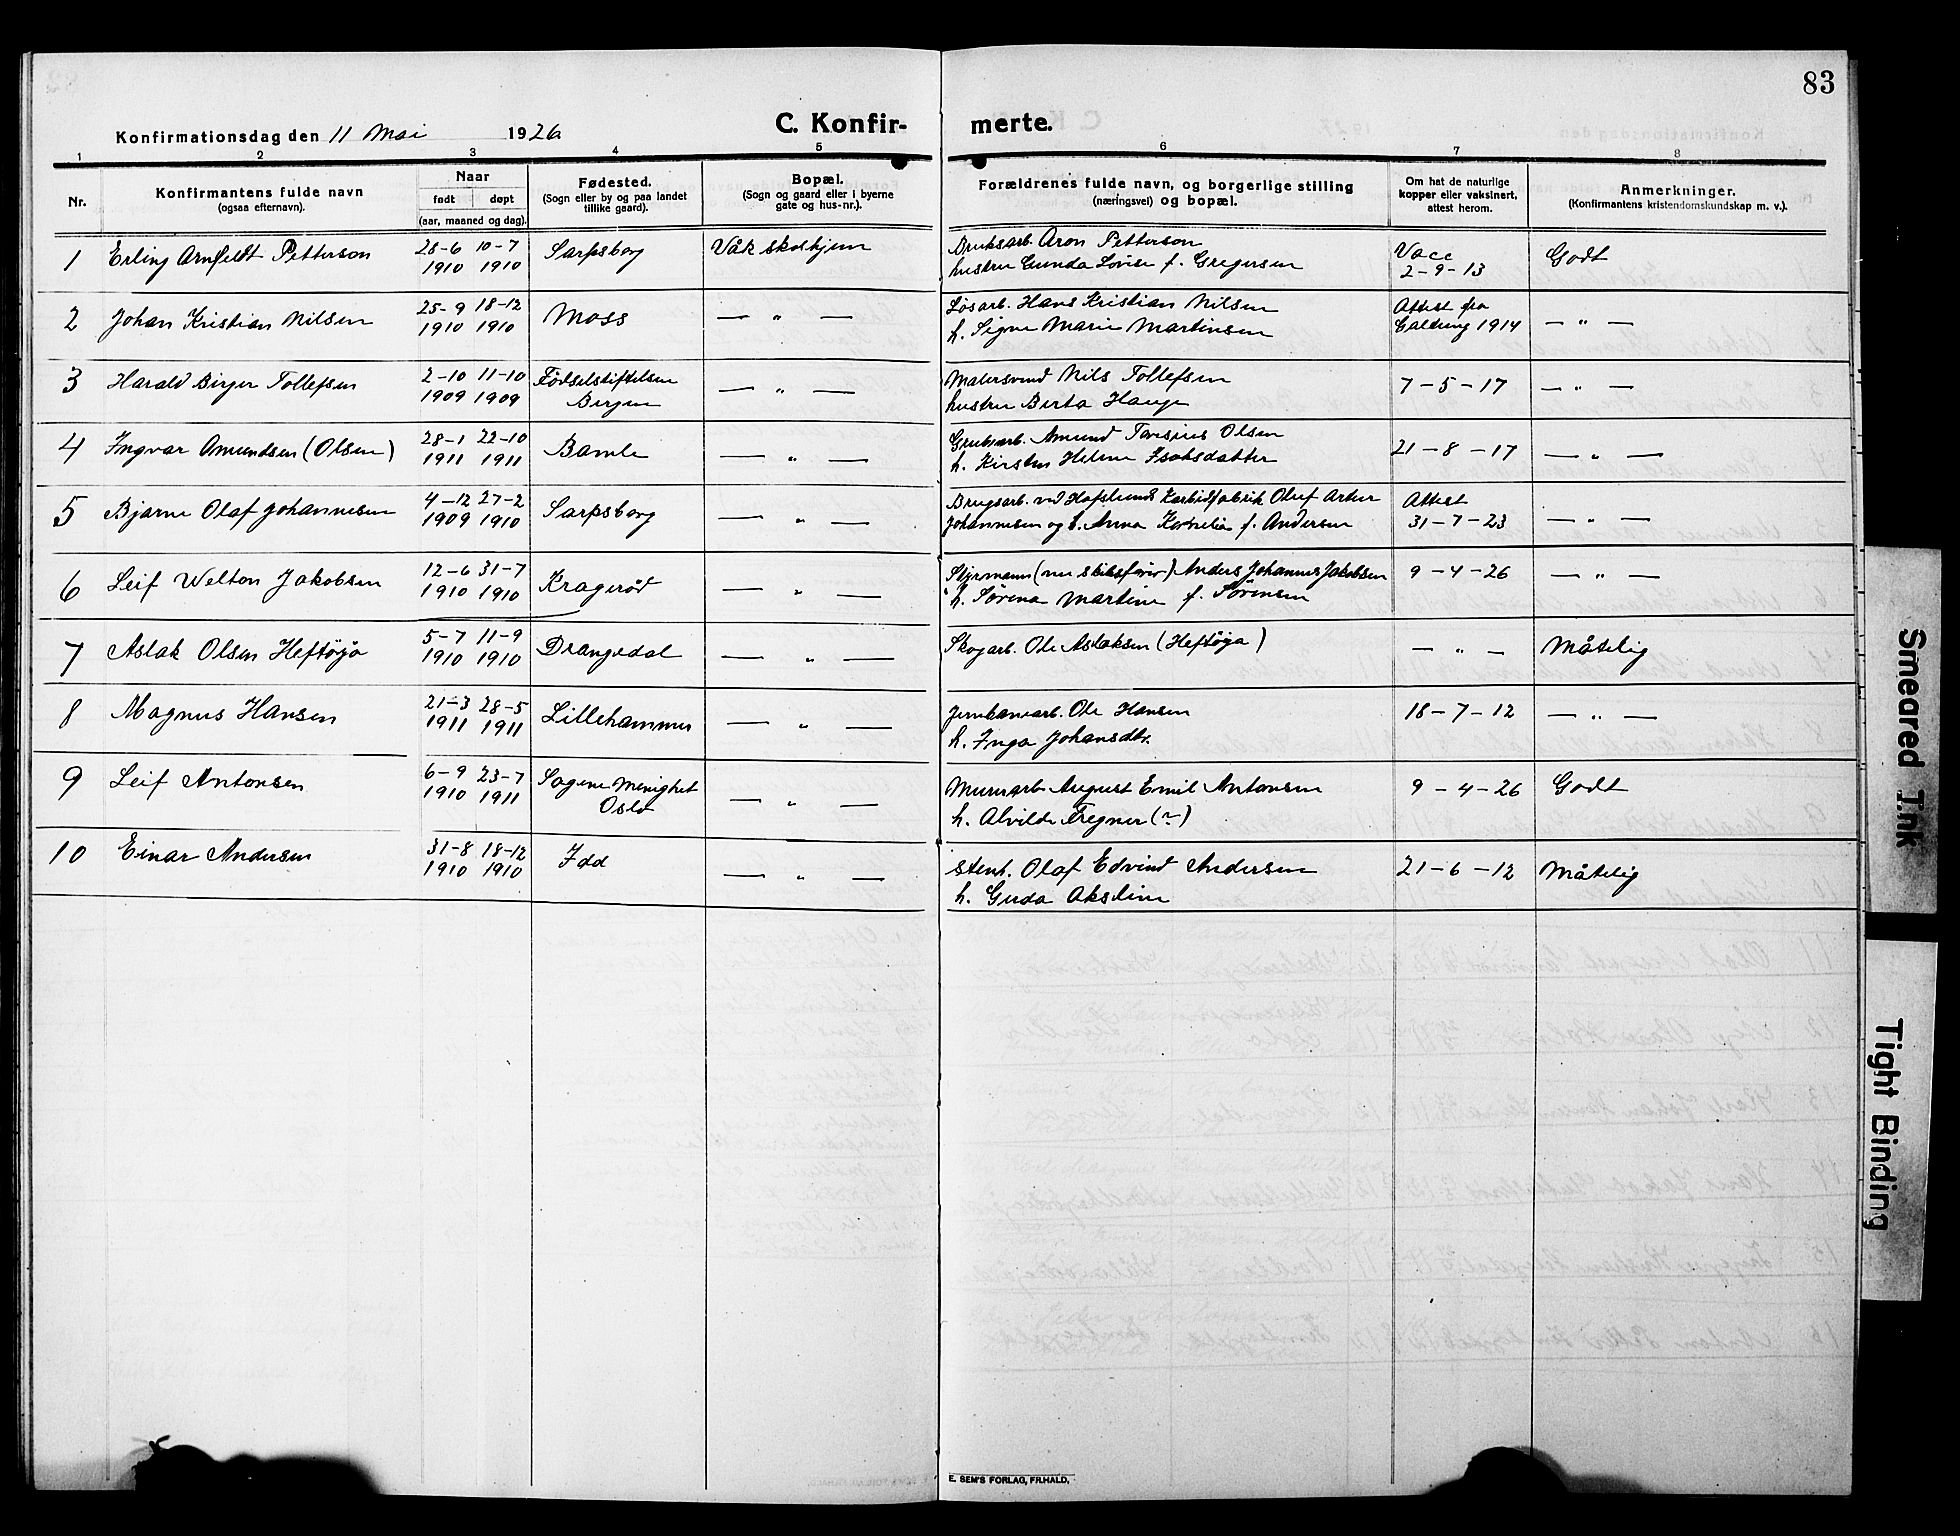 83
Konfirmationsdag den 11 Mai 1926
C. Konfir-
merte.
1 2 3 4 5 6 7 8
Nr.
Konfirmantens fulde navn
(ogsaa efternavn).
Naar
født døpt
(aar, maaned og dag).
Fødested.
(Sogn eller by og paa landet
tillike gaard).
Bopæl.
(Sogn og gaard eller i byerne
gate og hus-nr.).
Forældrenes fulde navn, og borgerlige stilling
(næringsvei) og bopæl.
Om hat de naturlige
kopper eller vaksinert,
attest herom.
Anmerkninger.
(Konfirmantens kristendomskundskap m. v.).
1 Erling Arnfeldt Petterson 28-6 10-7 Sarpsborg Våk skolehjem Bruksarb. Aron Petterson Vacc Godt
1910 1910 hustru Gunda Lovise f. Gregersen 2-9-13
2 Johan Kristian Nilsen 25-9 18-12 Moss — „ — Løsarb. Hans Kristian Nilsen Attest fra — „ —
1910 1910 h. Signe Marie Martinsen 1914
3 Harald Birger Tollefsen 2-10 11-10 Fødselstiftelsen — „ — Malersvend Nils Tollefsen 7-5-17 — „ —
1909 1909 Bergen hustru Berta Hauge
4 Ingvar Amundsen (Olsen) 28-1 22-10 Bamle — „ — Grubearb. Amund Olsen 21-8-17 — „ —
1911 1911 h. Kirsten Helene Isaksdatter
5 Bjarne Olaf Johannesen 4-12 27-2 Sarpsborg — „ — Brugsarb. ved Hafslunds Karbidfabrik Oluf Artur Attest — „ —
1909 1910 Johannesen og h. Anna Kornelia f. Andersen 31-7-23
6 Leif Welton Jakobsen 12-6 31-7 Kragerød — „ — Styrmann (nu skibsfører) Anders Johannes Jakobsen 9-4-26 — „ —
1910 1910 h. Sørena Martine f. Sørensen
7 Aslak Olsen Heftøja 5-7 11-9 Drangedal — „ — Skogarb. Ole Aslaksen (Heftøja) — „ — Måtelig
1910 1910
8 Magnus Hansen 21-3 28-5 Lillehammer — „ — Jernbanearb. Ole Hansen 18-7-12 — „ —
1911 1911 h. Inga Johansdtr.
9 Leif Antonsen 6-9 23-7 Sagene Menighet — „ — Murerarb. August Emil Antonsen 9-4-26 Godt
1910 1911 Oslo h. Alvilde Fregner (~)
10 Einar Andersen 31-8 18-12 Idd — „ — Stenh. Olaf Edvind Andersen 21-6-12 Måtelig
1910 1910 h. Guda Akseline
E. SEM'S FORLAG, FR.HALD.
Smeared Ink
Tight Binding